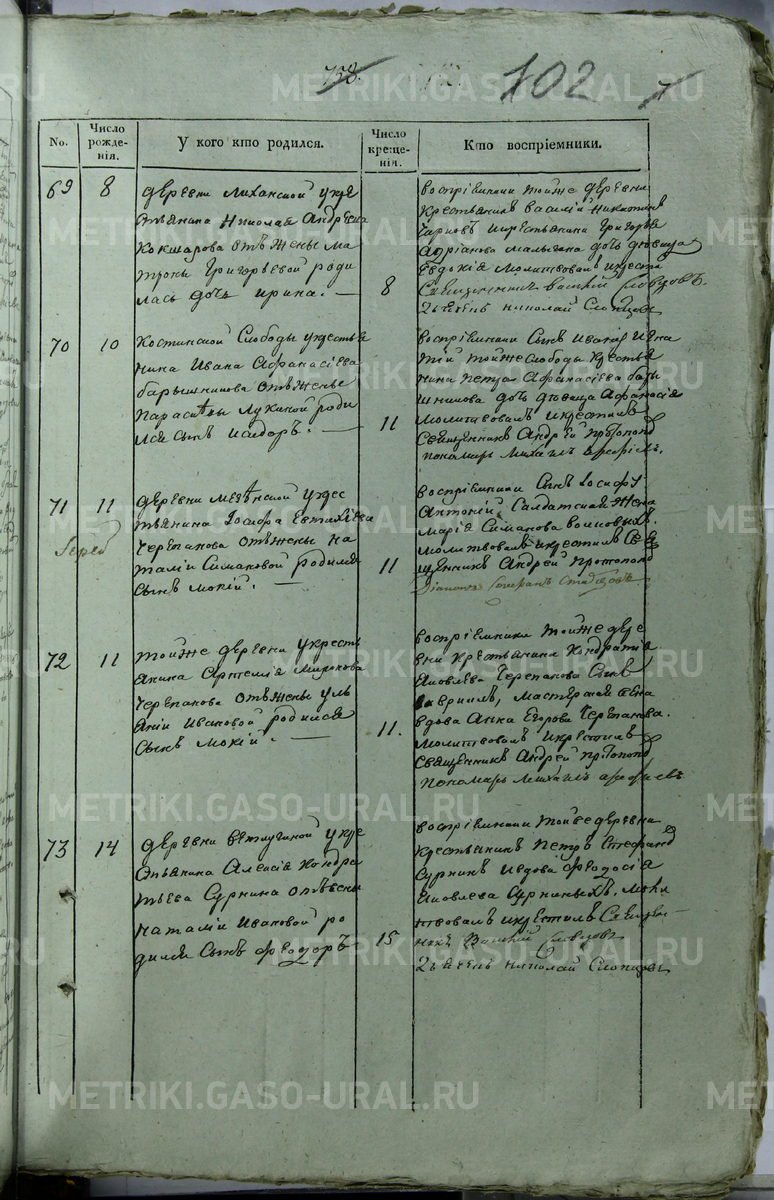 758. 102
No.
Число рожде-нія.
У кого кто родился.
Число креще-нія.
Кто воспріемники.
69 8
деревни Лиханской укре
стьянина Николая Андреева
Кокшарова отъ жены Ма
троны Григорьевой роди
лась дочь Ирина. —
8
воспріемники тойже деревни
крестьянинъ Василій Никитинъ
икрестьянина Григорья
Адріанова Малыгина дочь девица
Евдокія молитвовалъ икрести
Священникъ Василій Словцовъ
Николай Слопцовъ
70 10
Костинской Слободы укрестья
нина Ивана Афанасіева
барышникова отъ жены
Параскевы Лукиной роди
лся сынъ Исидоръ. —
11
воспріемники сынъ Иванъ Игна
тій тойже слободы крестья
нина Петра Афанасіева бары
шникова дочь девица Афанасія
молитвовалъ икрестилъ
Священникъ Андрей Протопоповъ
пономарь Михаилъ Арефьевъ.
71 11
деревни укрес
тьянина Іосифа Евтихіева
Черепанова отъ жены На
таліи Симаковой родился
сынъ Мокій. —
11
воспріемники сынъ Іосифу
Антоній Салдатская жена
Марія Симанова
молитвовалъ икрестилъ Свя
щенникъ Андрей Протопопов
72 11
тойже деревни укресть
янина Артемія Миронова
Черепанова отъ жены Уль
яніи Ивановой родился
сынъ Мокій. —
11.
воспріемники тойже дере
вни крестьянина Кондратія
Яковлева Черепанова сынъ
Гавриилъ, мастерская жена
вдова Анна Егорова Черепанова.
молитвовалъ икрестилъ
Священникъ Андрей Протопопов
пономарь Михаилъ Арефьевъ
73 14
деревни Ветлугиной укре
стьянина Алексія Кондра
тьева Сурнина отъ жены
Наталіи Ивановой ро
дился сынъ Феодоръ
15
воспріемники тойже деревни
крестьянинъ Петръ Стефанов
Сурнинъ ивдова Феодосія
Яковлева Сурниныхъ. моли
твовалъ икрестилъ Священ-
никъ Василій Словцовъ
Николай Слопцовъ
METRIKI.GASO-URAL.RU